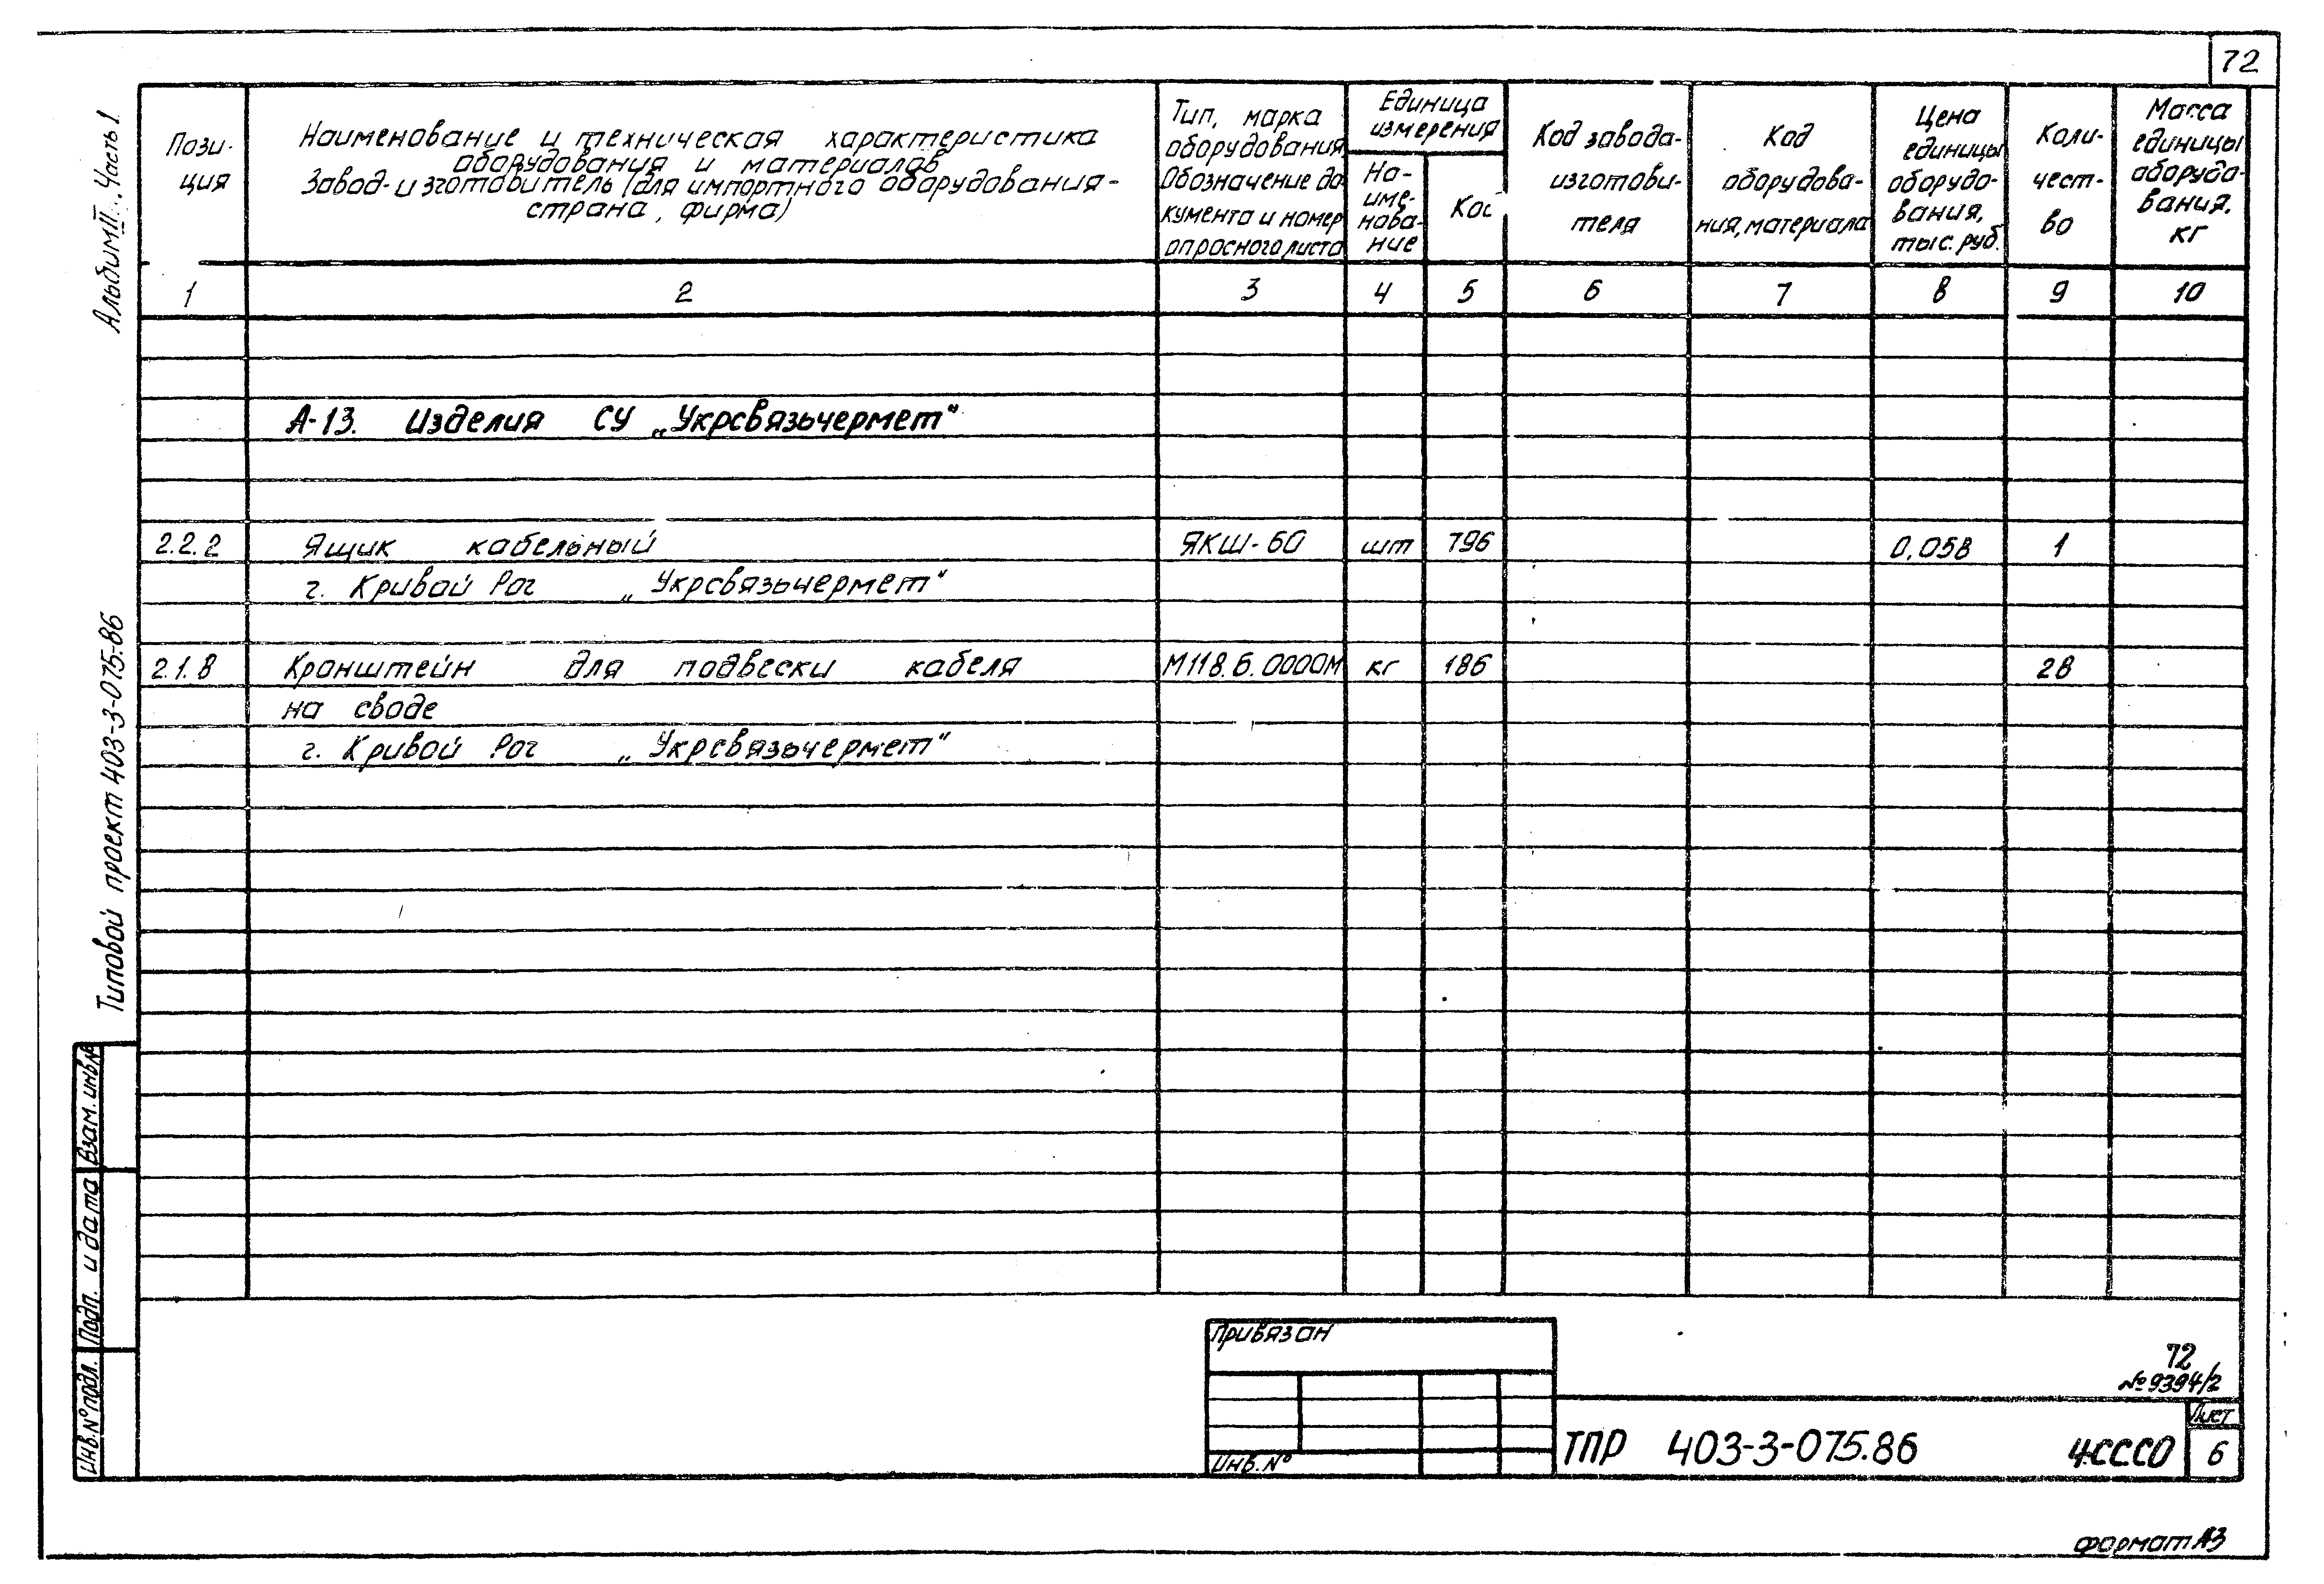 72
Альбом II. Часть 1
Типовой проект 403-3-075.86
Пози-
ция
Наименование и техническая характеристика
оборудования и материалов
Завод-изготовитель (для импортного оборудования-
страна, фирма)
Тип, марка
оборудования
Обозначение до-
кумента и номер
опросного листа
Единица
измерения
На-
име-
нова-
ние
Код
Код завода-
изготови-
теля
Код
оборудова-
ния, материала
Цена
единицы
оборудо-
вания,
тыс. руб.
Коли-
чест-
во
Масса
единицы
оборудо-
вания,
кг
1 2 3 4 5 6 7 8 9 10
А-13. Изделия СУ „Укрсвязьчермет"
2.2.2 Ящик кабельный ЯКШ-60 шт 796 0,058 1
г. Кривой Рог „Укрсвязьчермет"
2.1.8 Кронштейн для подвески кабеля М118.6.0000М кг 186 28
на своде
г. Кривой Рог „Укрсвязьчермет"
Взам. инв. №
Подп. и дата
Инв. № подл.
Привязан
Инв. №
72
№ 9394/2
ТПР 403-3-075.86 4.СС.СО
Лист
6
формат А3